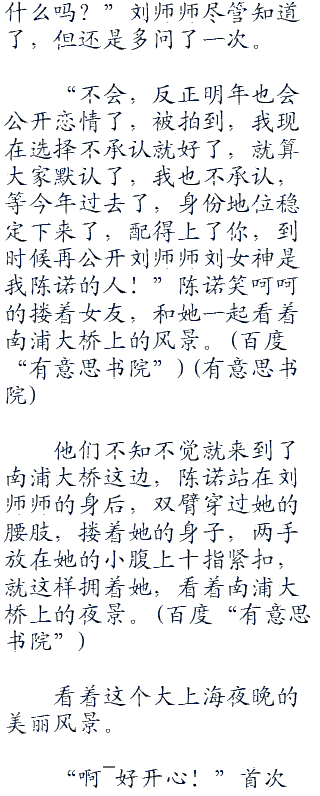 什么吗？”刘师师尽管知道
了，但还是多问了一次。
“不会，反正明年也会
公开恋情了，被拍到，我现
在选择不承认就好了，就算
大家默认了，我也不承认，
等今年过去了，身份地位稳
定下来了，配得上了你，到
时候再公开刘师师刘女神是
我陈诺的人！”陈诺笑呵呵
的搂着女友，和她一起看着
南浦大桥上的风景。(百度
“有意思书院”)(有意思书
院)
他们不知不觉就来到了
南浦大桥这边，陈诺站在刘
师师的身后，双臂穿过她的
腰肢，搂着她的身子，两手
放在她的小腹上十指紧扣，
就这样拥着她，看着南浦大
桥上的夜景。(百度“有意思
书院”)
看着这个大上海夜晚的
美丽风景。
“啊¯好开心！”首次